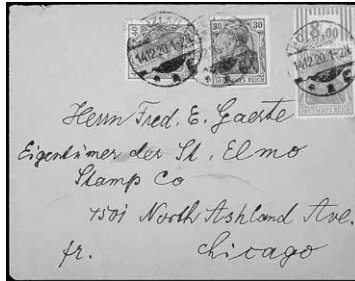 14.12.20.1-2N.
30
30
DEUTSCHES REICH
14.12.20.1-2N.
8,00
DEUTSCHES REICH
Herrn Fred. E. Gaerte
Eigentümer der St. Elmo
Stamp Co
1501 North Ashland Ave.
fr. Chicago